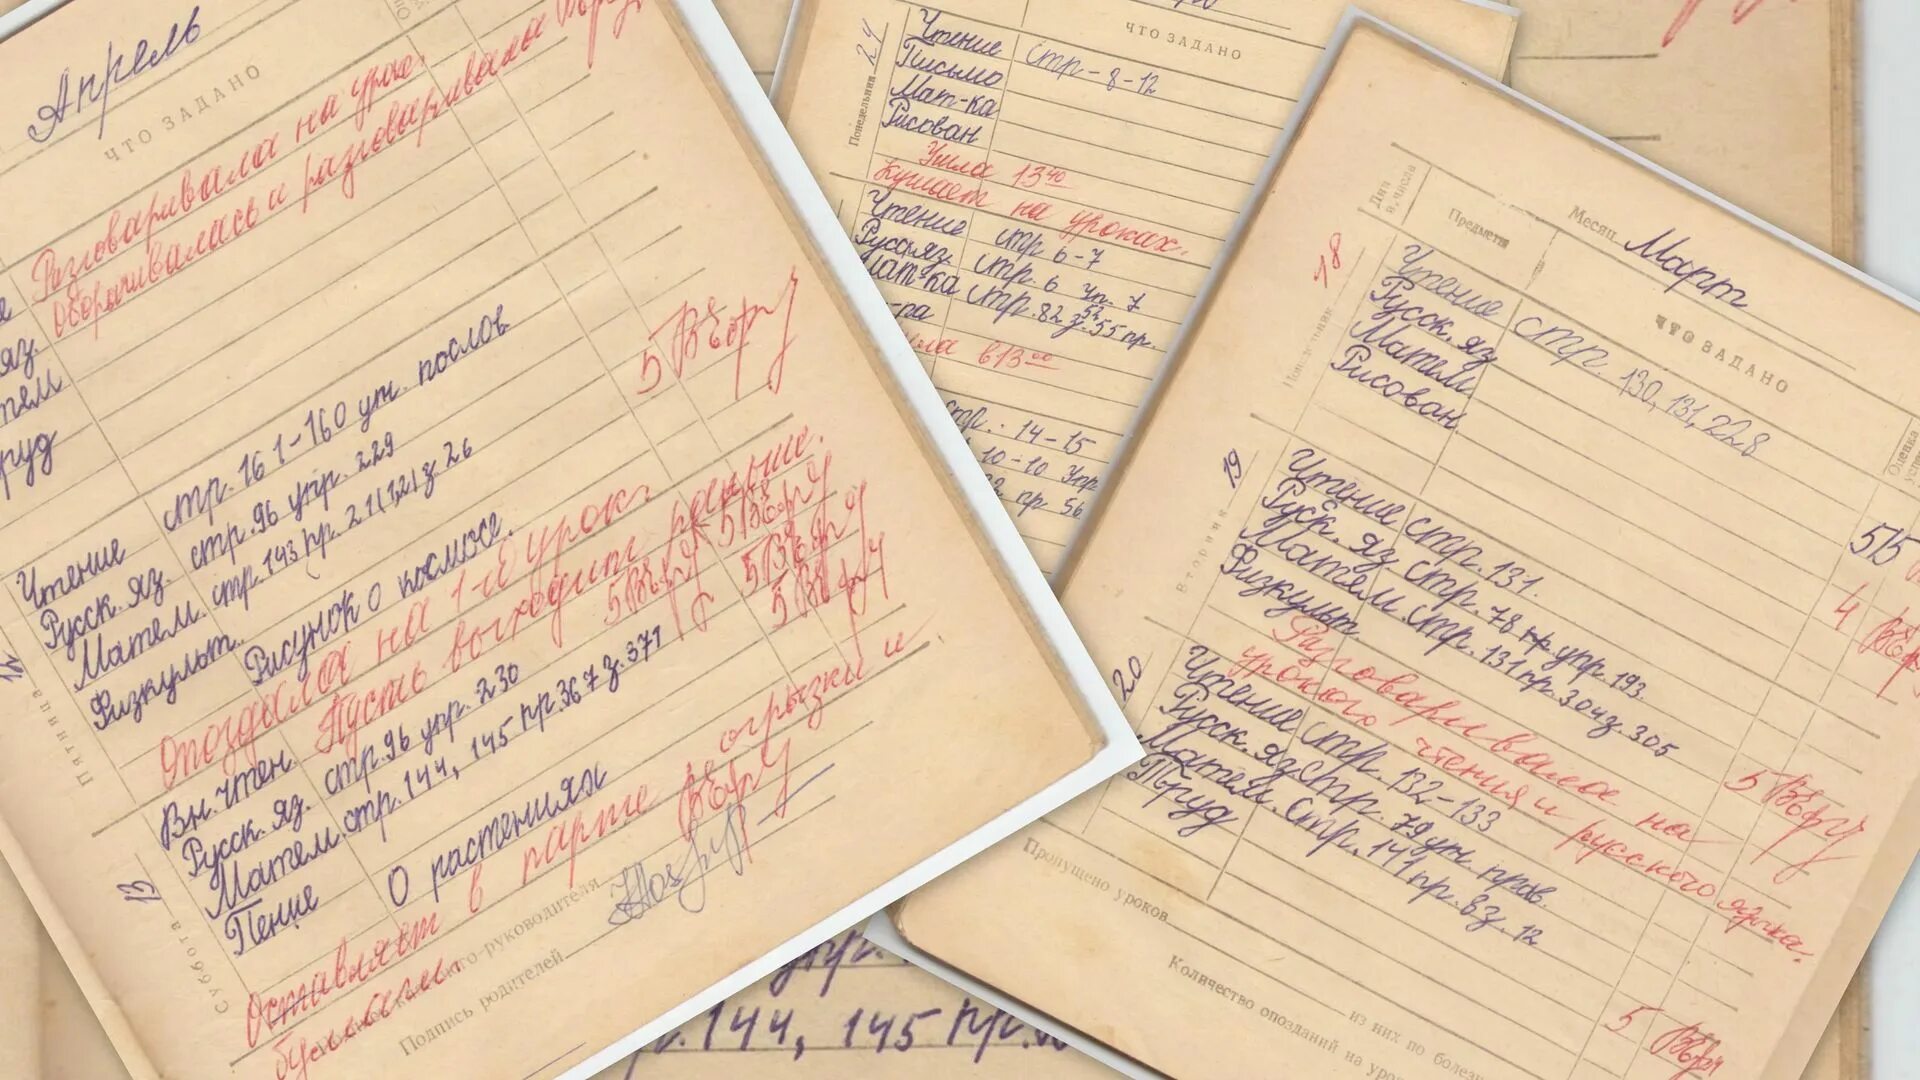 Апрель
ЧТО ЗАДАНО
Разговаривала на уроке.
Оборачивалась и разговаривала
яз.
5
Чтение стр. 161-160 ум. послов
Русск. яз. стр. 96 упр. 229
Матем. стр. 143 пр. 21(1,2) з. 26
Физкульт.
Рисунок о космосе.
Опоздала на 1-й урок.
Пусть выходит раньше.
Пятница
Вн. чтен.
Русск. яз. стр. 96 упр. 230
Матем. стр. 144, 145 пр. 367 з. 371
Пение
О растениях
5
5
5
5
13
Суббота
Оставляет в парте огрызки и
бумаги.
руководителя
Подпись родителей
ЧТО ЗАДАНО
Понедельник
24
Чтение стр-8-12
Письмо
Мат-ка
Рисован
Ушла 13 40
Кушает на уроках.
Чтение стр 6-7
Русск яз. стр. 6 уп. 7
Мат-ка стр. 82 з. 55 пр. 52
в 13 00
стр. 14-15
10-10 Упр
пр 56
Дни и числа
Предметы
Месяц Март
ЧТО ЗАДАНО
Оценка
18
Понедельник
Чтение стр. 130, 131, 228
Русск. яз
Матем
Рисован.
5/5
19
Вторник
Чтение стр. 131.
Русск. яз стр. 78 упр. 193.
Матем. стр. 131 пр. 304 з. 305
Физкульт
4
Разговаривала на
уроках чтения и русского языка.
20
Чтение стр. 132-133
Русск. яз стр. 79 ум. прав.
Матем. стр. 141 пр. 8 з. 12
Труд
5
5
Пропущено уроков
из них по болезни
Количество опозданий на
упр.
144, 145 пр.